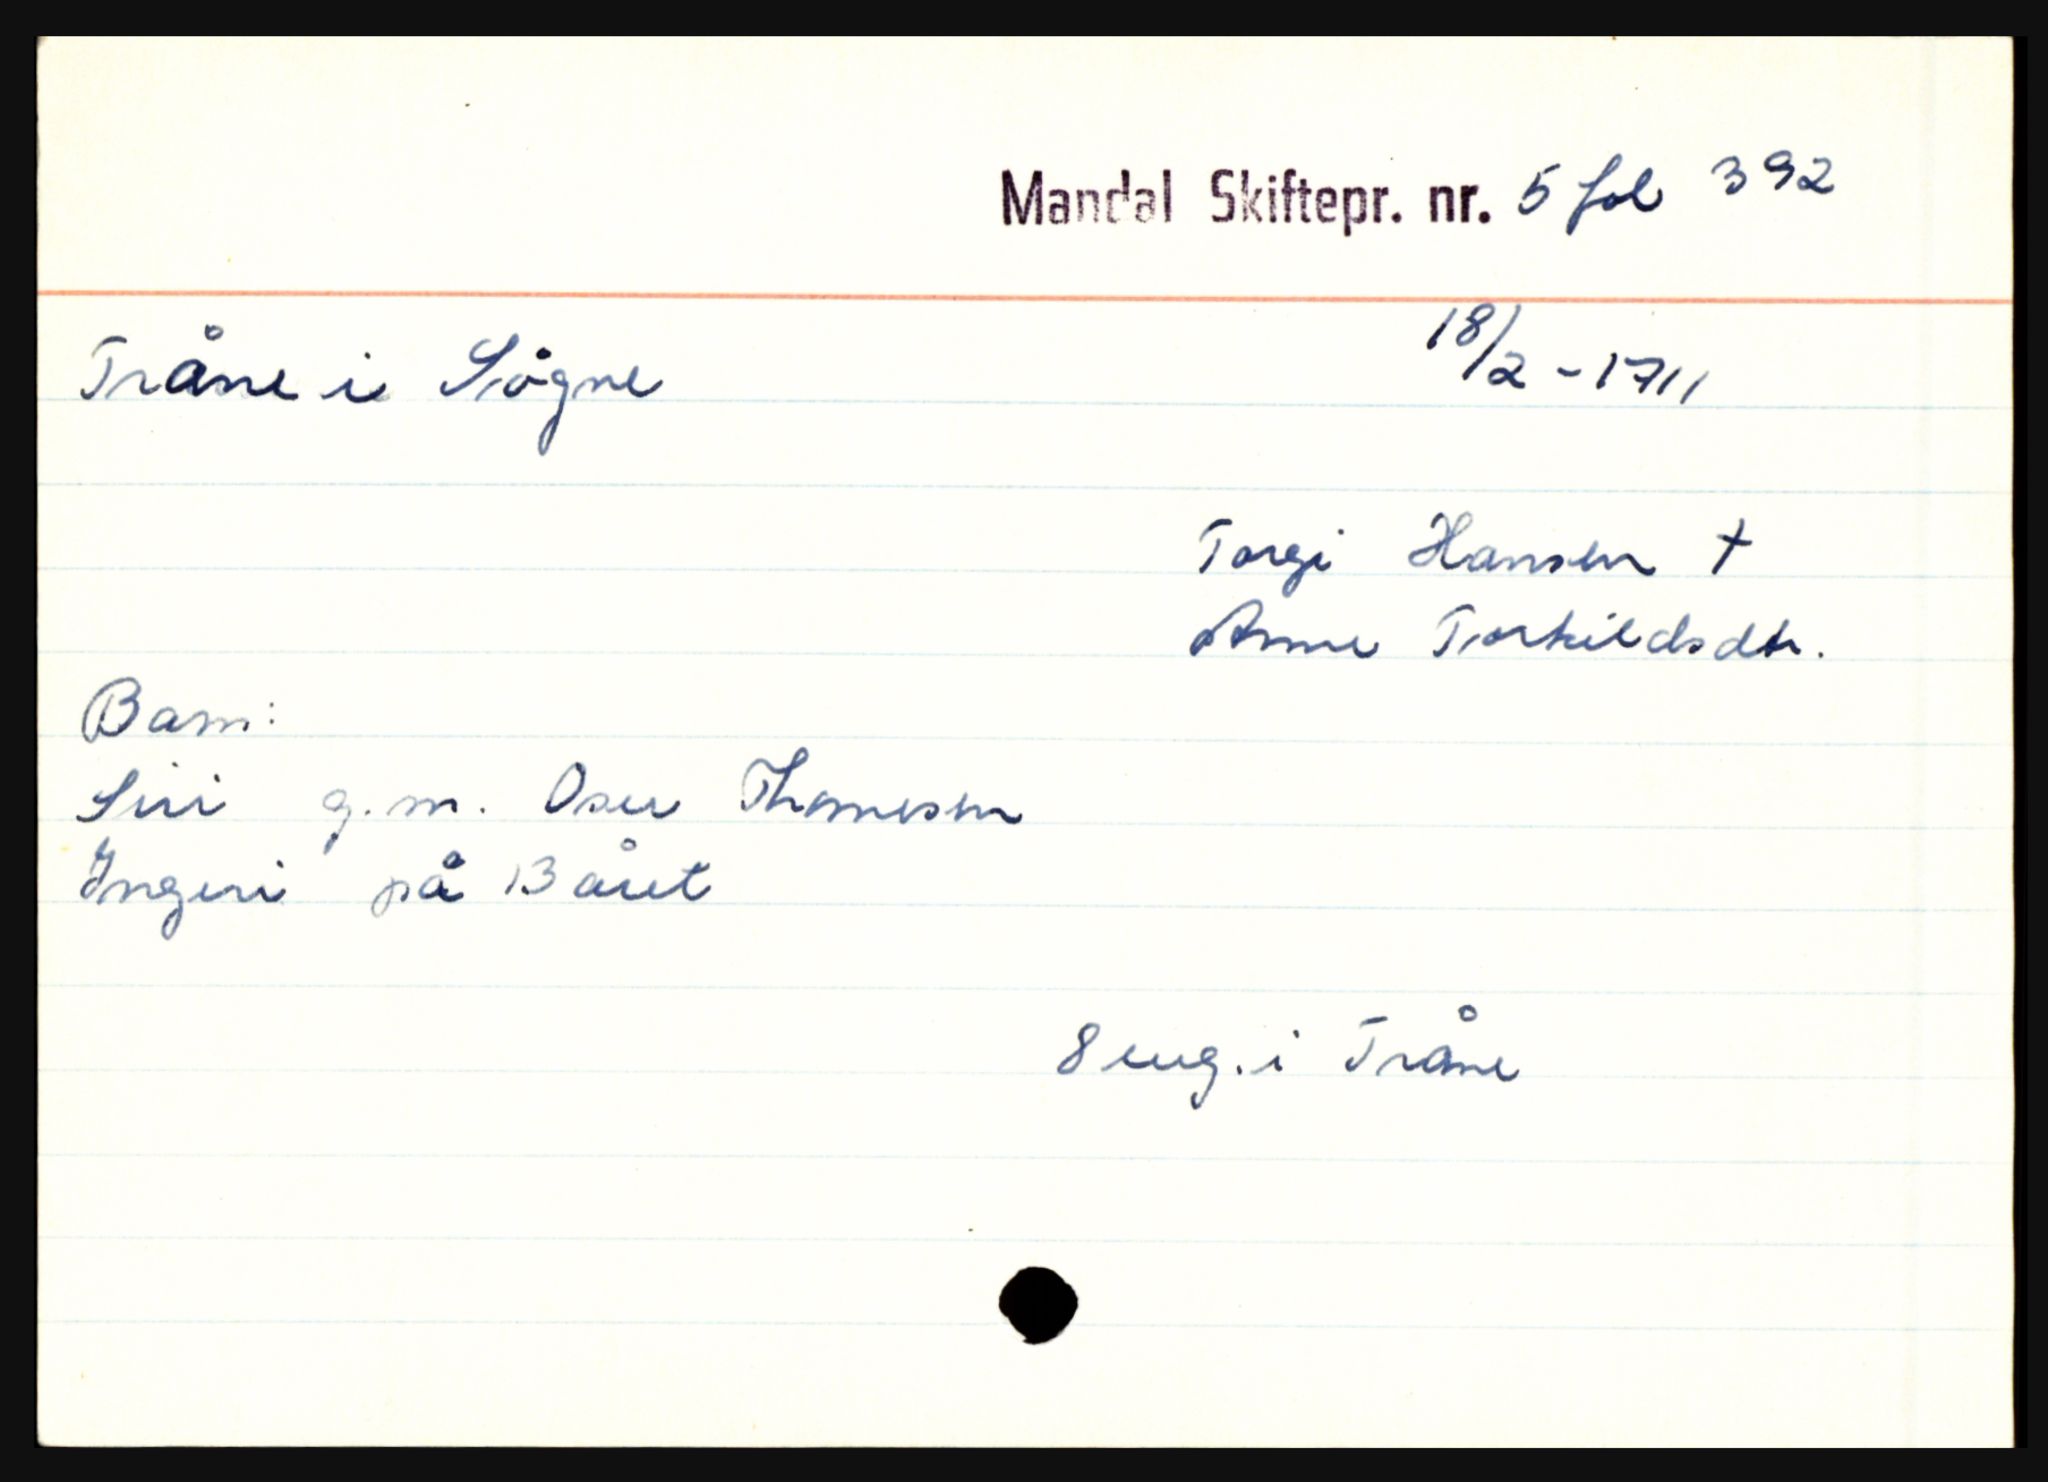 Mandal Skiftepr. nr. 5 fol 392
Tråne i Søgne 18/2 - 1711
Torgi Hansen †
Anne Torkildsdtr.
Barn:
Siri g.m. Oser Thomesen
Ingeri på 13 året
8 eng. i Tråne